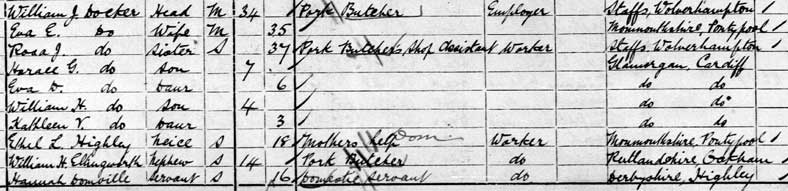 William J. Docker Head M 34 Pork Butcher Employer Staffs, Wolverhampton
Eva E. Do Wife M 35 Monmouthshire, Pontypool
Rosa J. do Sister S 37 Pork Butchers, Shop Assistant Worker Staffs, Wolverhampton
Horace G. do Son 7 Glamorgan, Cardiff
Eva D. do Daur 6 do do
William H. do Son 4 do do
Kathleen V. do Daur 3 do do
Ethel L. Highley Neice S 18 Mothers help Dom. Worker Monmouthshire, Pontypool
William H. Ellingworth Nephew S 14 Pork Butcher do Rutlandshire Oakham
Hannah Domville Servant S 16 Domestic Servant do Derbyshire, Highley